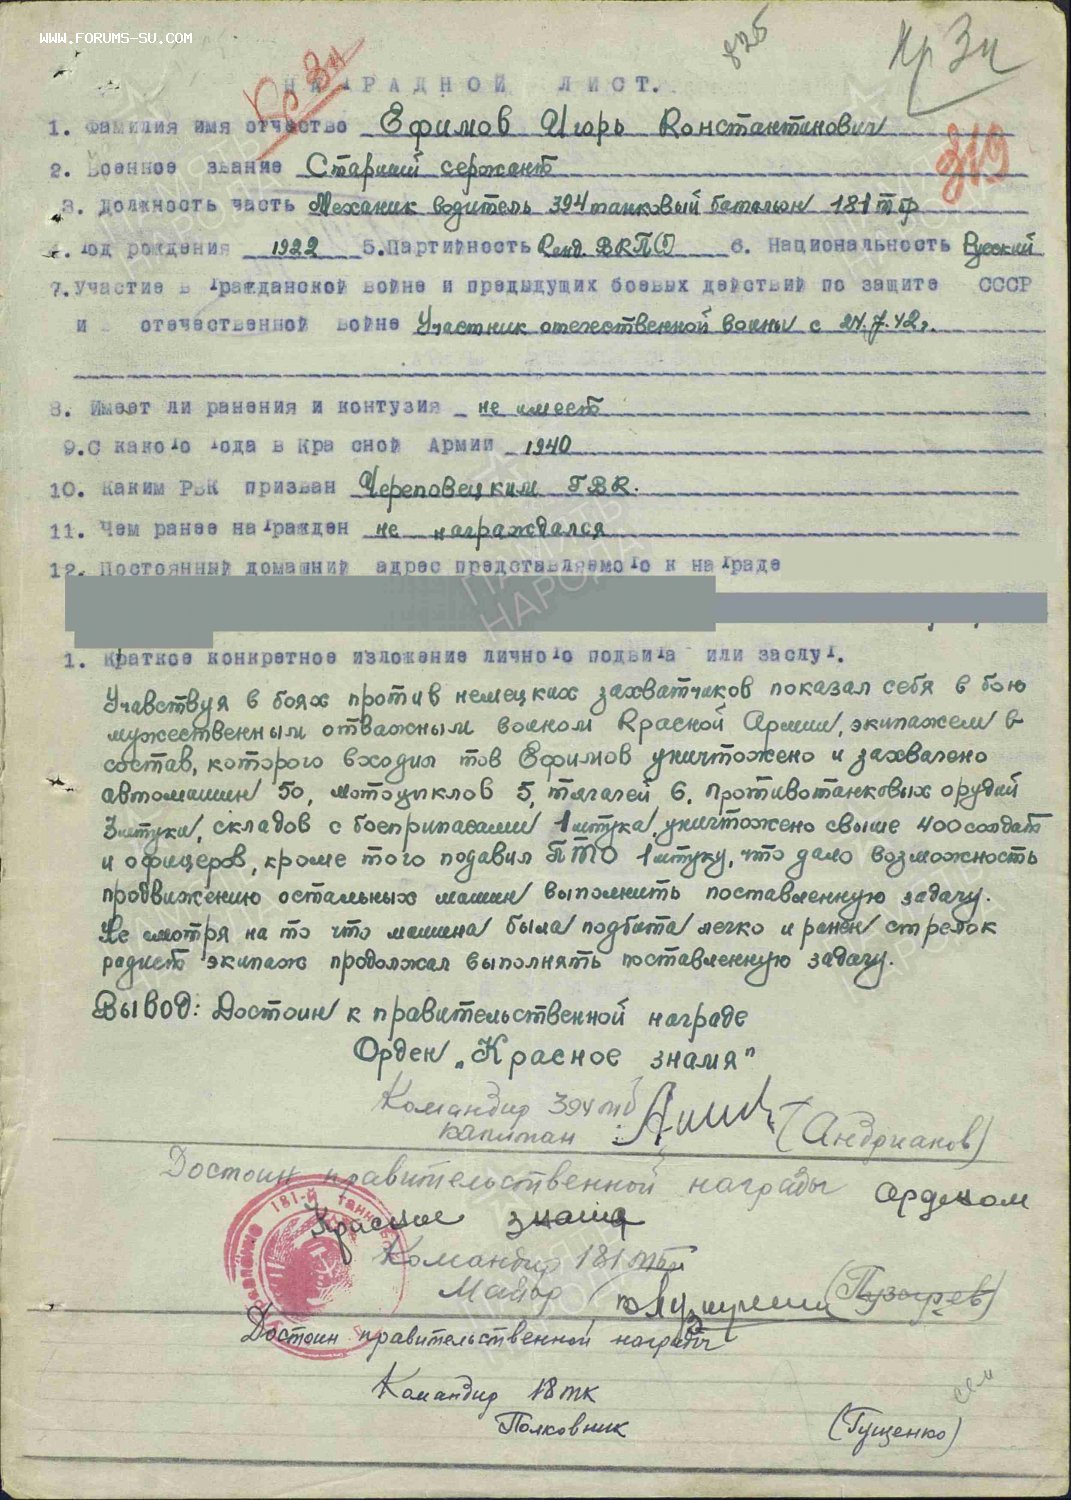 WWW.FORUMS-SU.COM
825
Кр Зн
Кр Зн
НАГРАДНОЙ ЛИСТ.
319
1. Фамилия имя отчество Ефимов Игорь Константинович
2. Военное звание Старший сержант
3. Должность часть Механик водитель 394 танковый батальон 181 тбр
4. Год рождения 1922 5. Партийность Канд. ВКП(б) 6. Национальность Русский
7. Участие в Гражданской войне и предыдущих боевых действий по защите СССР
и в отечественной войне Участник отечественной войны с 24.7.42г.
8. Имеет ли ранения и контузия не имеет
9. С какого года в Красной Армии 1940
10. Каким РВК призван Череповецким ГВК.
11. Чем ранее награжден не награждался
12. Постоянный домашний адрес представляемого к награде
1. Краткое конкретное изложение личного подвига или заслуг.
Учавствуя в боях против немецких захватчиков показал себя в бою
мужественным отважным воином Красной Армии, экипажем в
состав, которого входил тов Ефимов уничтожено и захвалено
автомашин 50, мотоциклов 5, тягалей 6, противотанковых орудий
3 штуки, складов с боеприпасами 1 штука, уничтожено свыше 400 солдат
и офицеров, кроме того подавил ПТО 1 штуку, что дало возможность
продвижению остальных машин выполнить поставленную задачу.
Не смотря на то что машина была подбита легко и ранен стрелок
радист экипаж продолжал выполнять поставленную задачу.
Вывод: Достоин к правительственной награде
Орден „Красное знамя"
Командир 394 тб
капитан (Андрианов)
Достоин правительственной награды орденом
Красное знамя
Командир 181 тбр
Майор (Пузырев)
Достоин правительственной награды
Командир 18 тк
Полковник (Гущенко)
181-й танков
ПАМЯТЬ НАРОДА